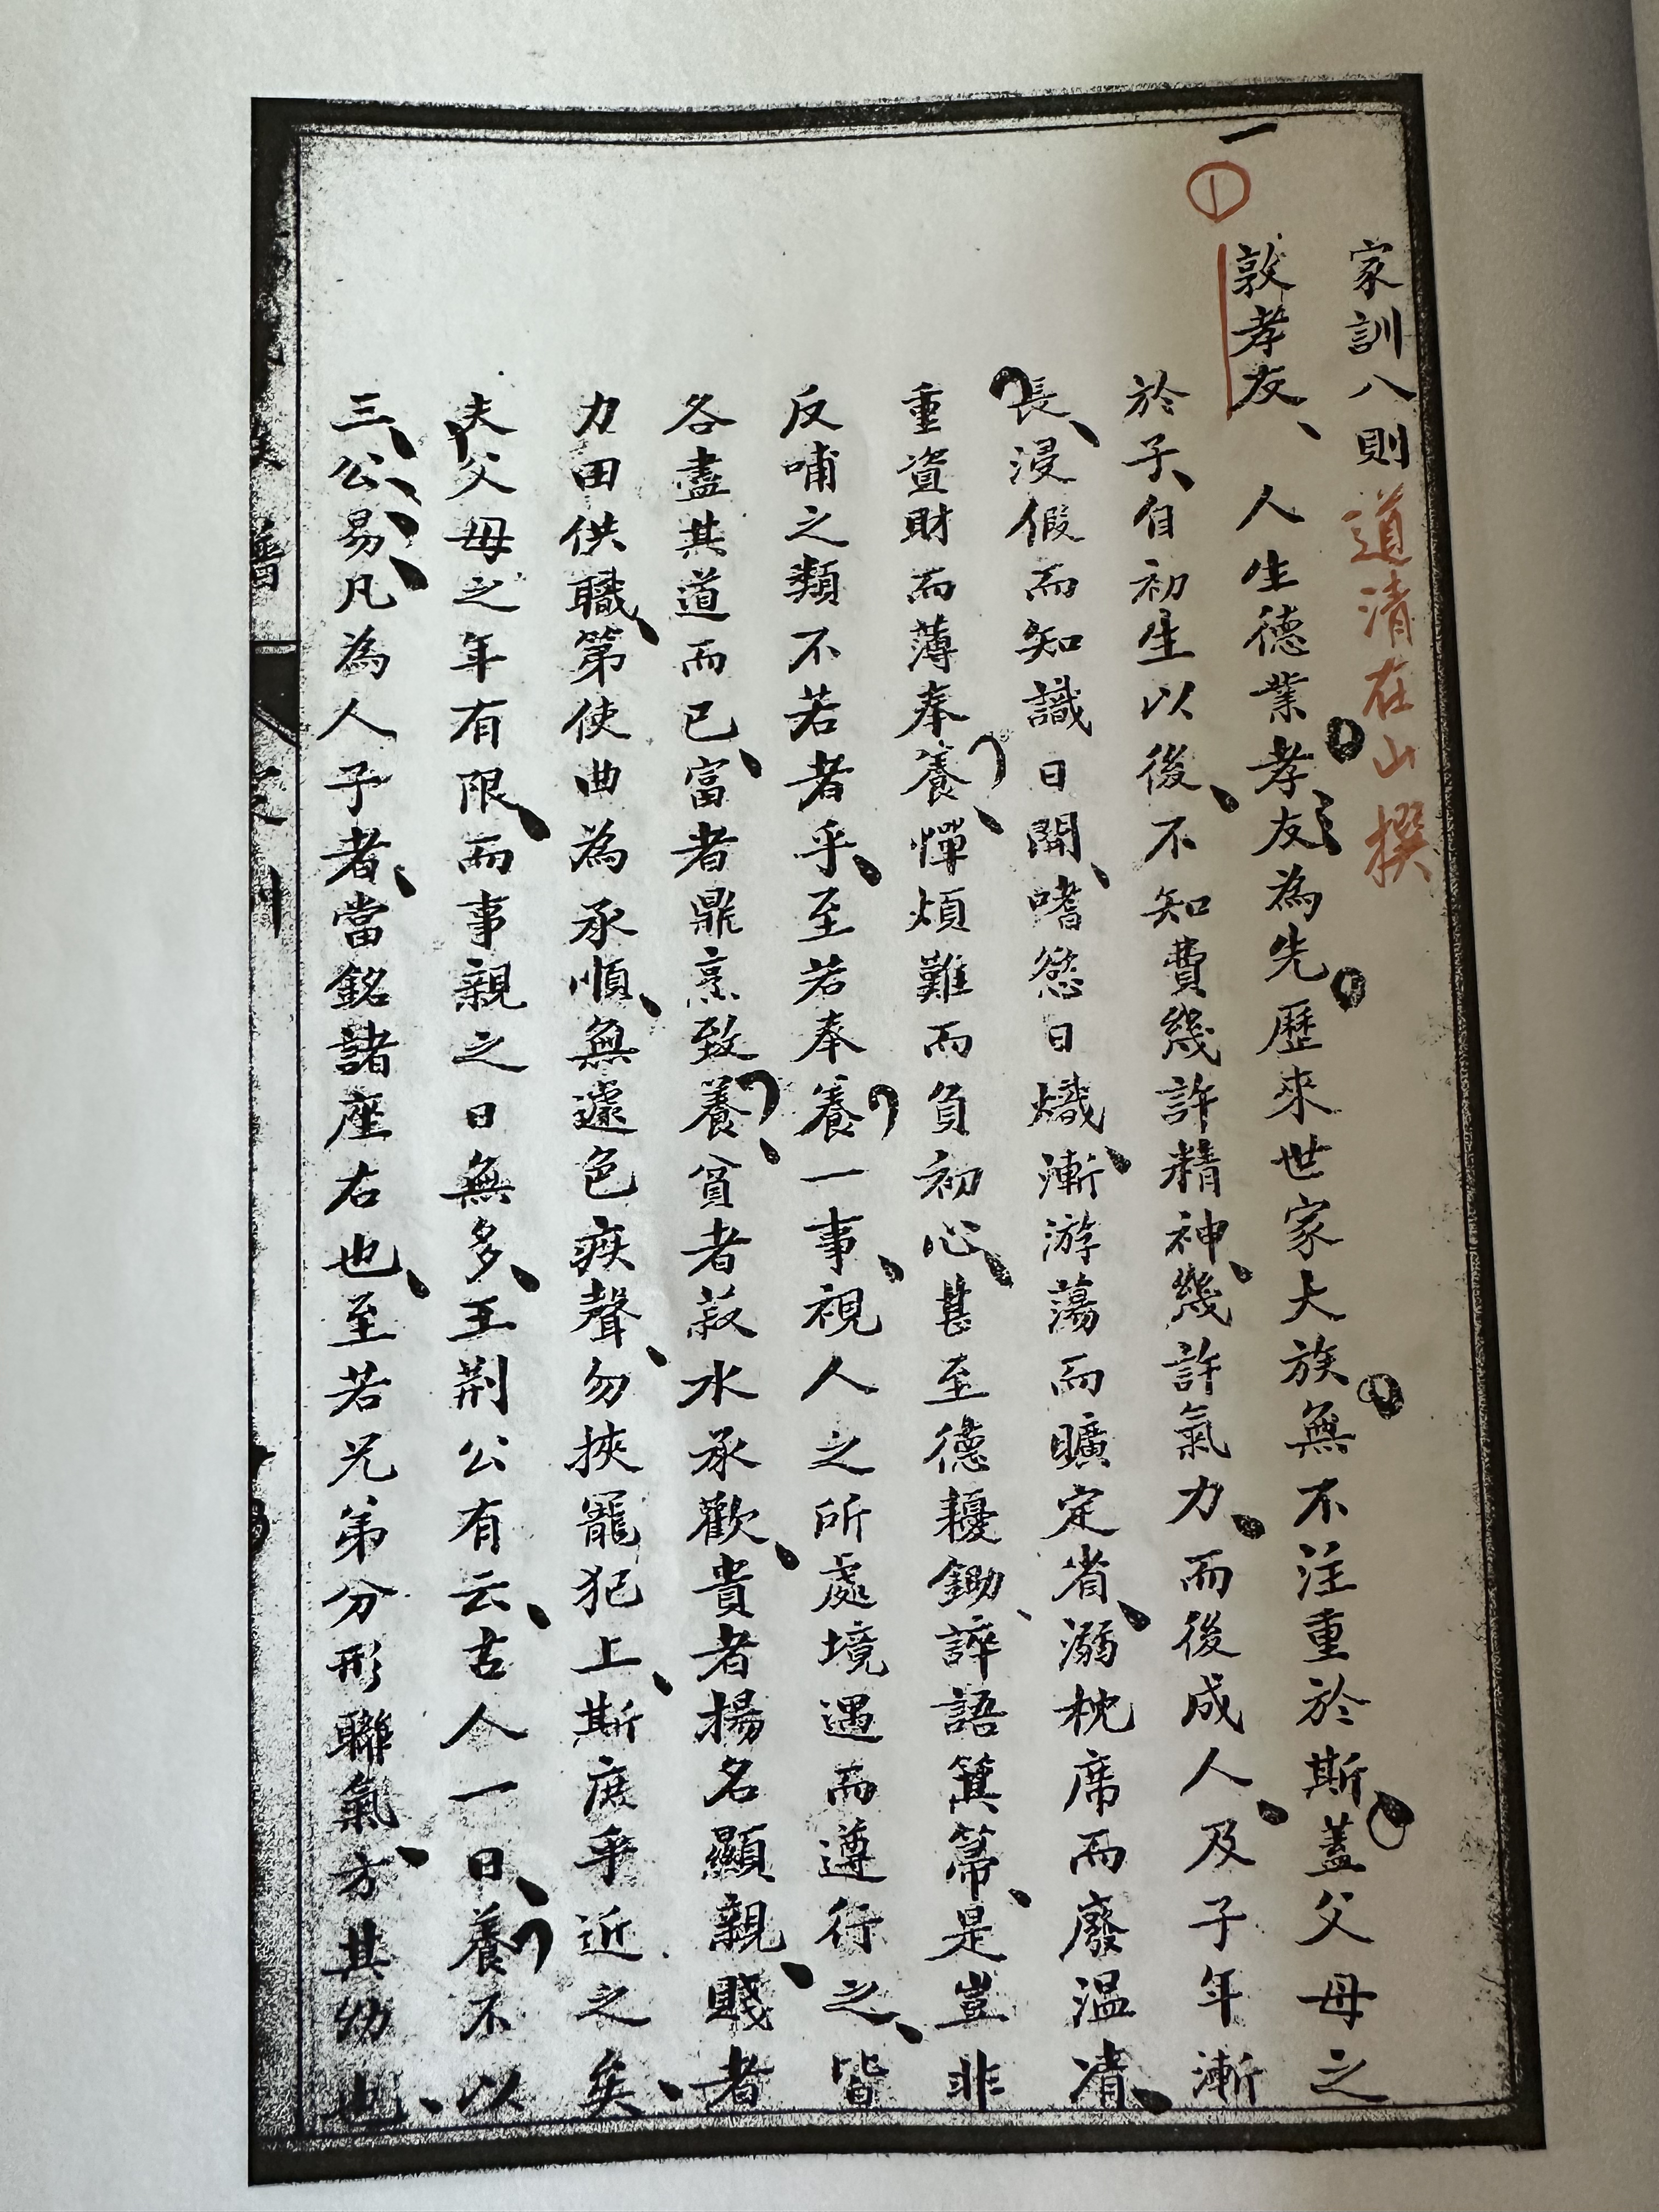 家訓八則 道清在山撰
一 ① 敦孝友、 人生德業孝友為先歷來世家大族無不注重於斯蓋父母之
於子、自初生以後、不知費幾許精神、幾許氣力、而後成人、及子年漸
長、浸假而知識日開、嗜慾日熾、漸游蕩而曠定省、溺枕席而廢温凊、
重資財而薄奉養、憚煩難而負初心、甚至德耰鋤、誶語箕箒、是豈非
反哺之類不若者乎、至若奉養一事、視人之所處境遇而遵行之、皆
各盡其道而已、富者鼎烹致養、貧者菽水承歡、貴者揚名顯親、賤者
力田供職、第使曲為承順、無遽色疾聲、勿挾寵犯上、斯庶乎近之矣、
夫父母之年有限、而事親之日無多、王荆公有云、古人一日、養不以
三、公、易、凡、為人子者、當銘諸座右也、至若兄弟分形聯氣、方其幼也、
譜
家訓